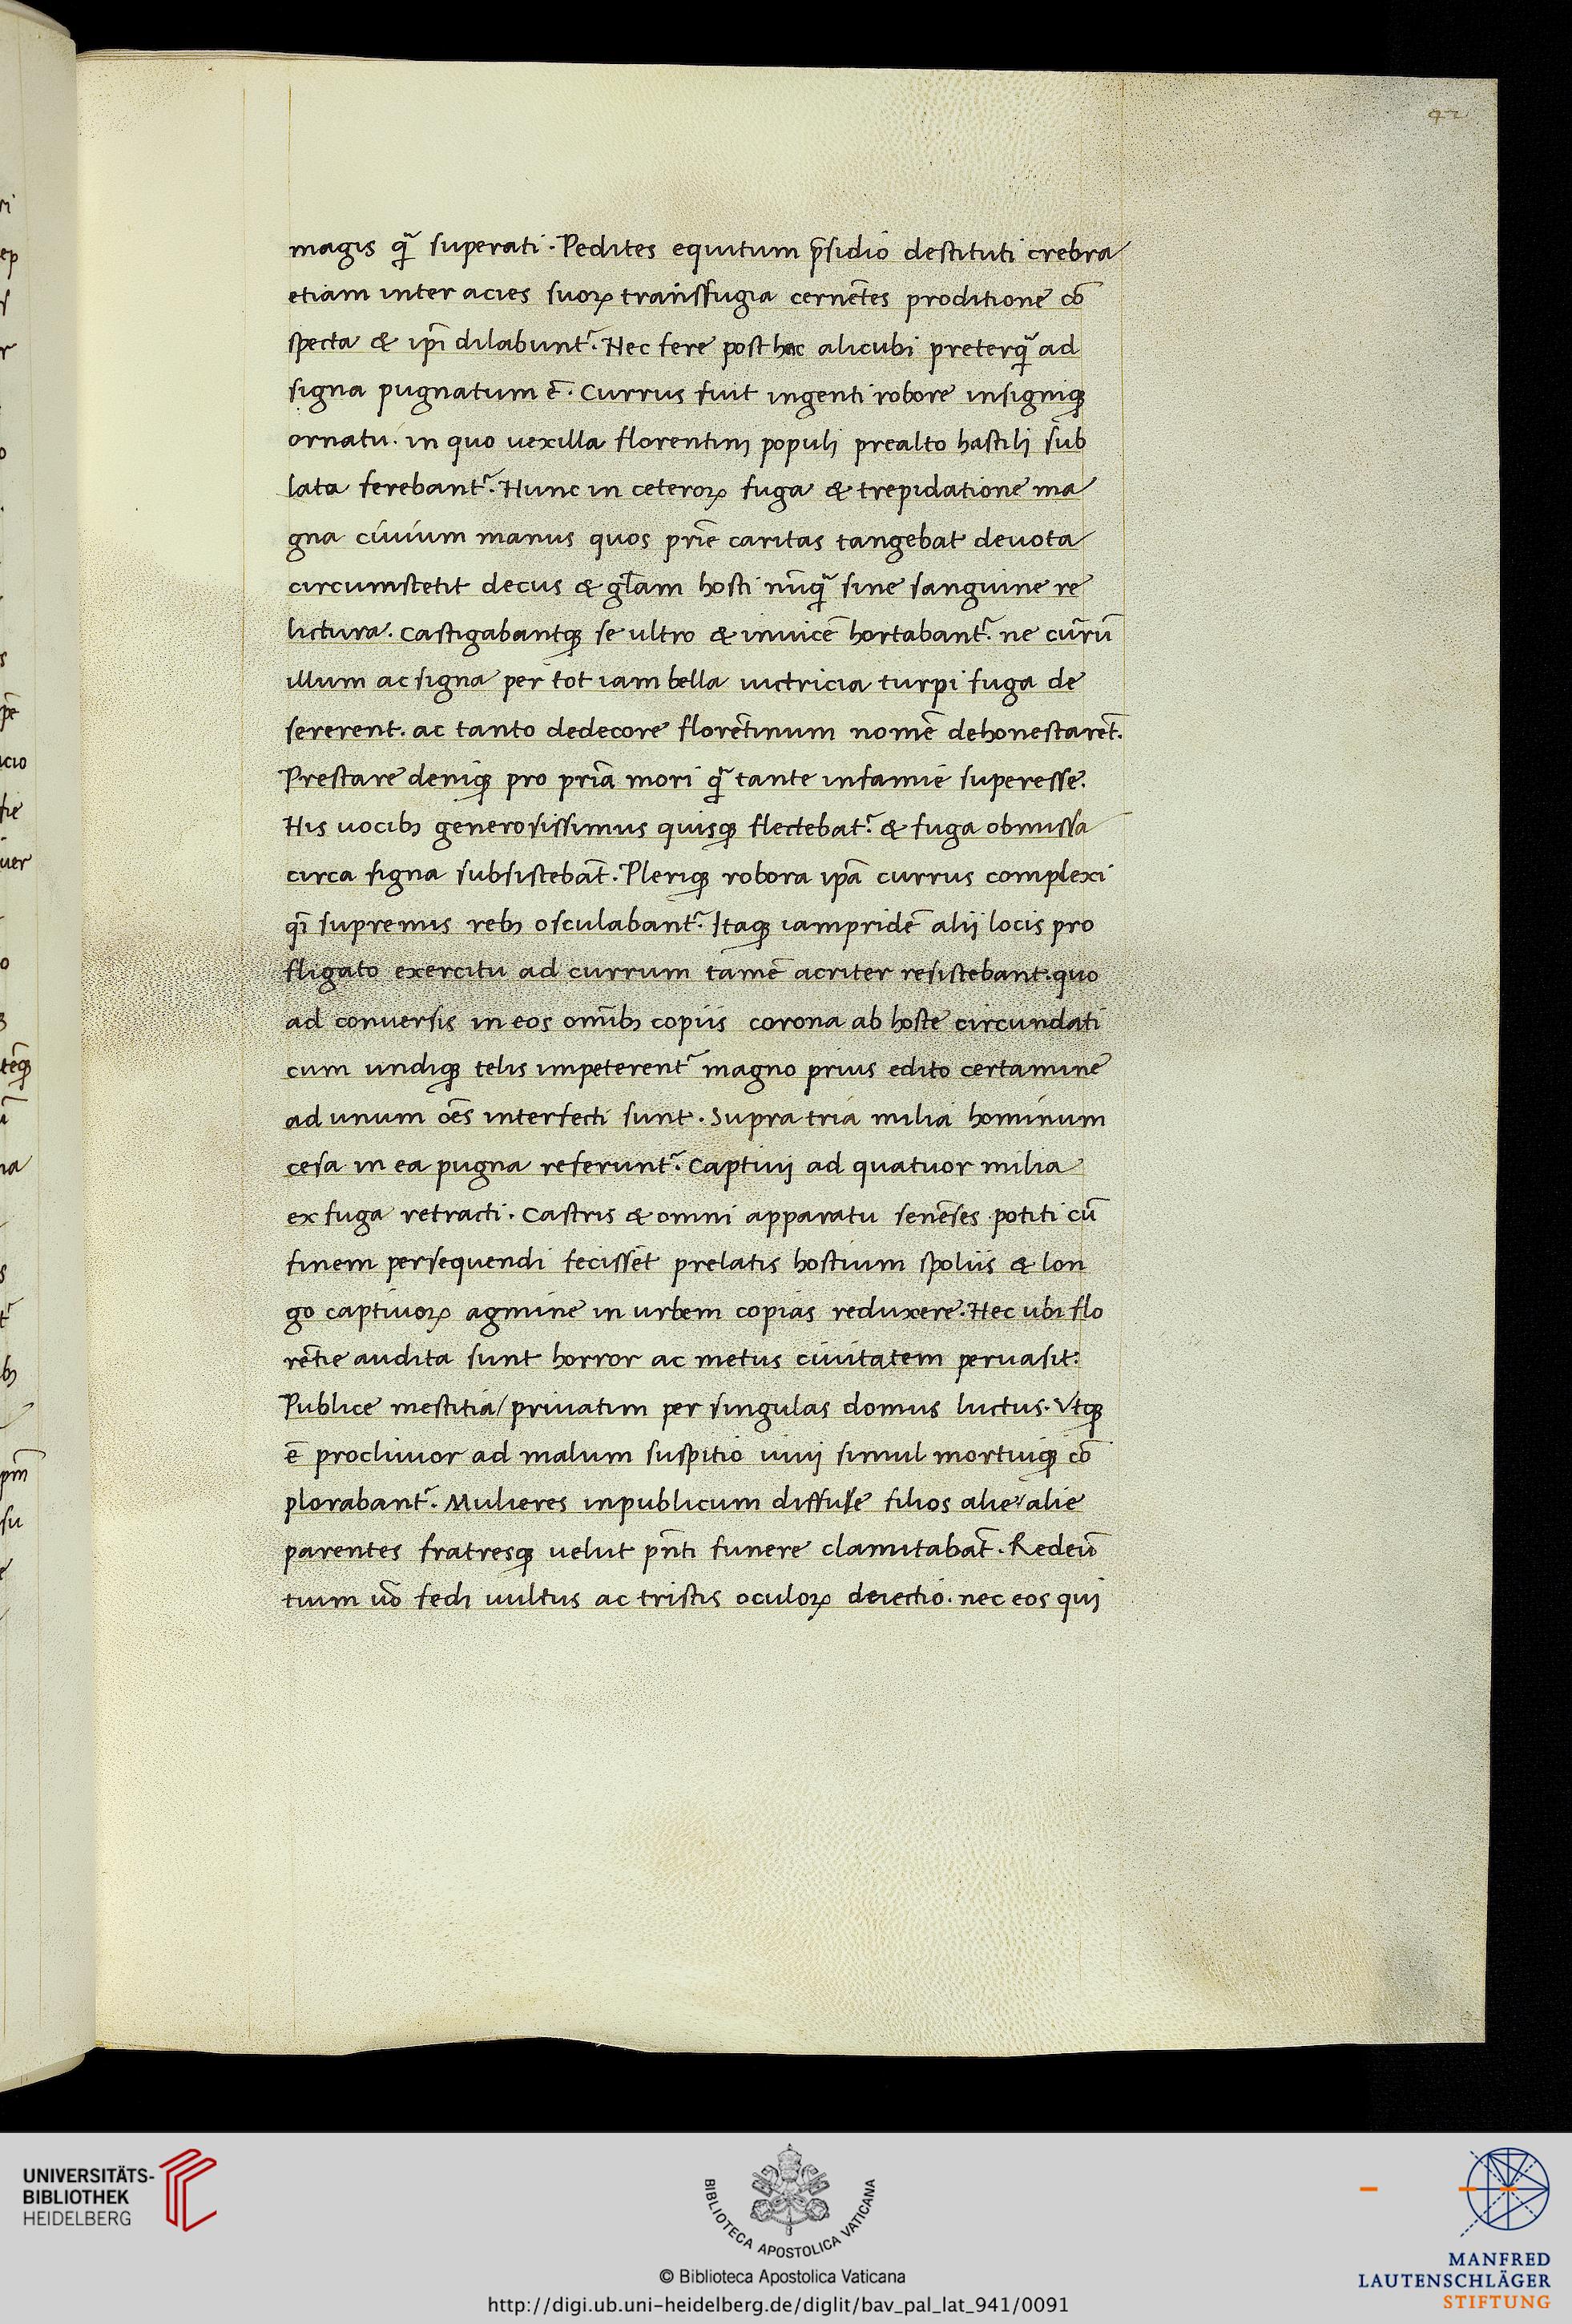 42
magis qᷓ superati. Pedites equitum p̄sidio destituti crebra
etiam inter acies suoꝝ transfugia cernētes proditione cō
specta & ip̄i dilabuntᷣ. Hec fere post hac alicubi preterqᷓ ad
signa pugnatum ē. Currus fuit ingenti robore insigniqꝫ
ornatu. in quo uexilla florentinj populj prealto hastilj sub
lata ferebantᷣ. Hunc in ceteroꝝ fuga & trepidatione ma
gna ciuium manus quos pr̄ie caritas tangebat deuota
circumstetit decus & gl̄am hosti nūqᷓ sine sanguine re
lictura. Castigabantqꝫ se ultro & inuicē hortabantᷣ. ne currū
illum ac signa per tot iam bella uictricia turpi fuga de
sererent. ac tanto dedecore florētinum nomē dehonestarēt.
Prestare deniqꝫ pro pr̄ia mori qᷓ tante infamie superesse.
His uocibꝫ generosissimus quisqꝫ flectebatᷣ. & fuga obmissa
circa signa subsistebāt. Pleriqꝫ robora ip̄a currus complexi
q̄i supremis rebꝫ osculabantᷣ. Itaqꝫ iampridē alij locis pro
fligato exercitu ad currum tamē acriter resistebant. quo
ad conuersis in eos omībꝫ copiis corona ab hoste circundati
cum undiqꝫ telis impeterentᷣ magno prius edito certamine
ad unum oēs interfecti sunt. Supra tria milia hominum
cesa in ea pugna referuntᷣ. Captiuj ad quatuor milia
ex fuga retracti. Castris & omni apparatu senēses potiti cū
finem persequendi fecissēt prelatis hostium spoliis & lon
go captiuoꝝ agmine in urbem copias reduxere. Hec ubi flo
rētie audita sunt horror ac metus ciuitatem peruasit.
Publice mestitia / priuatim per singulas domus luctus. Vtqꝫ
ē procliuior ad malum suspitio uiuj simul mortuiqꝫ cō
plorabantᷣ. Mulieres inpublicum diffuse filios alie / alie
parentes fratresqꝫ uelut pn̄ti funere clamitabāt. Redeū
tium uō fedi uultus ac tristis oculoꝝ deiectio. nec eos qui
UNIVERSITÄTS-
BIBLIOTHEK
HEIDELBERG
BIBLIOTECA APOSTOLICA VATICANA
© Biblioteca Apostolica Vaticana
http://digi.ub.uni-heidelberg.de/diglit/bav_pal_lat_941/0091
MANFRED
LAUTENSCHLÄGER
STIFTUNG